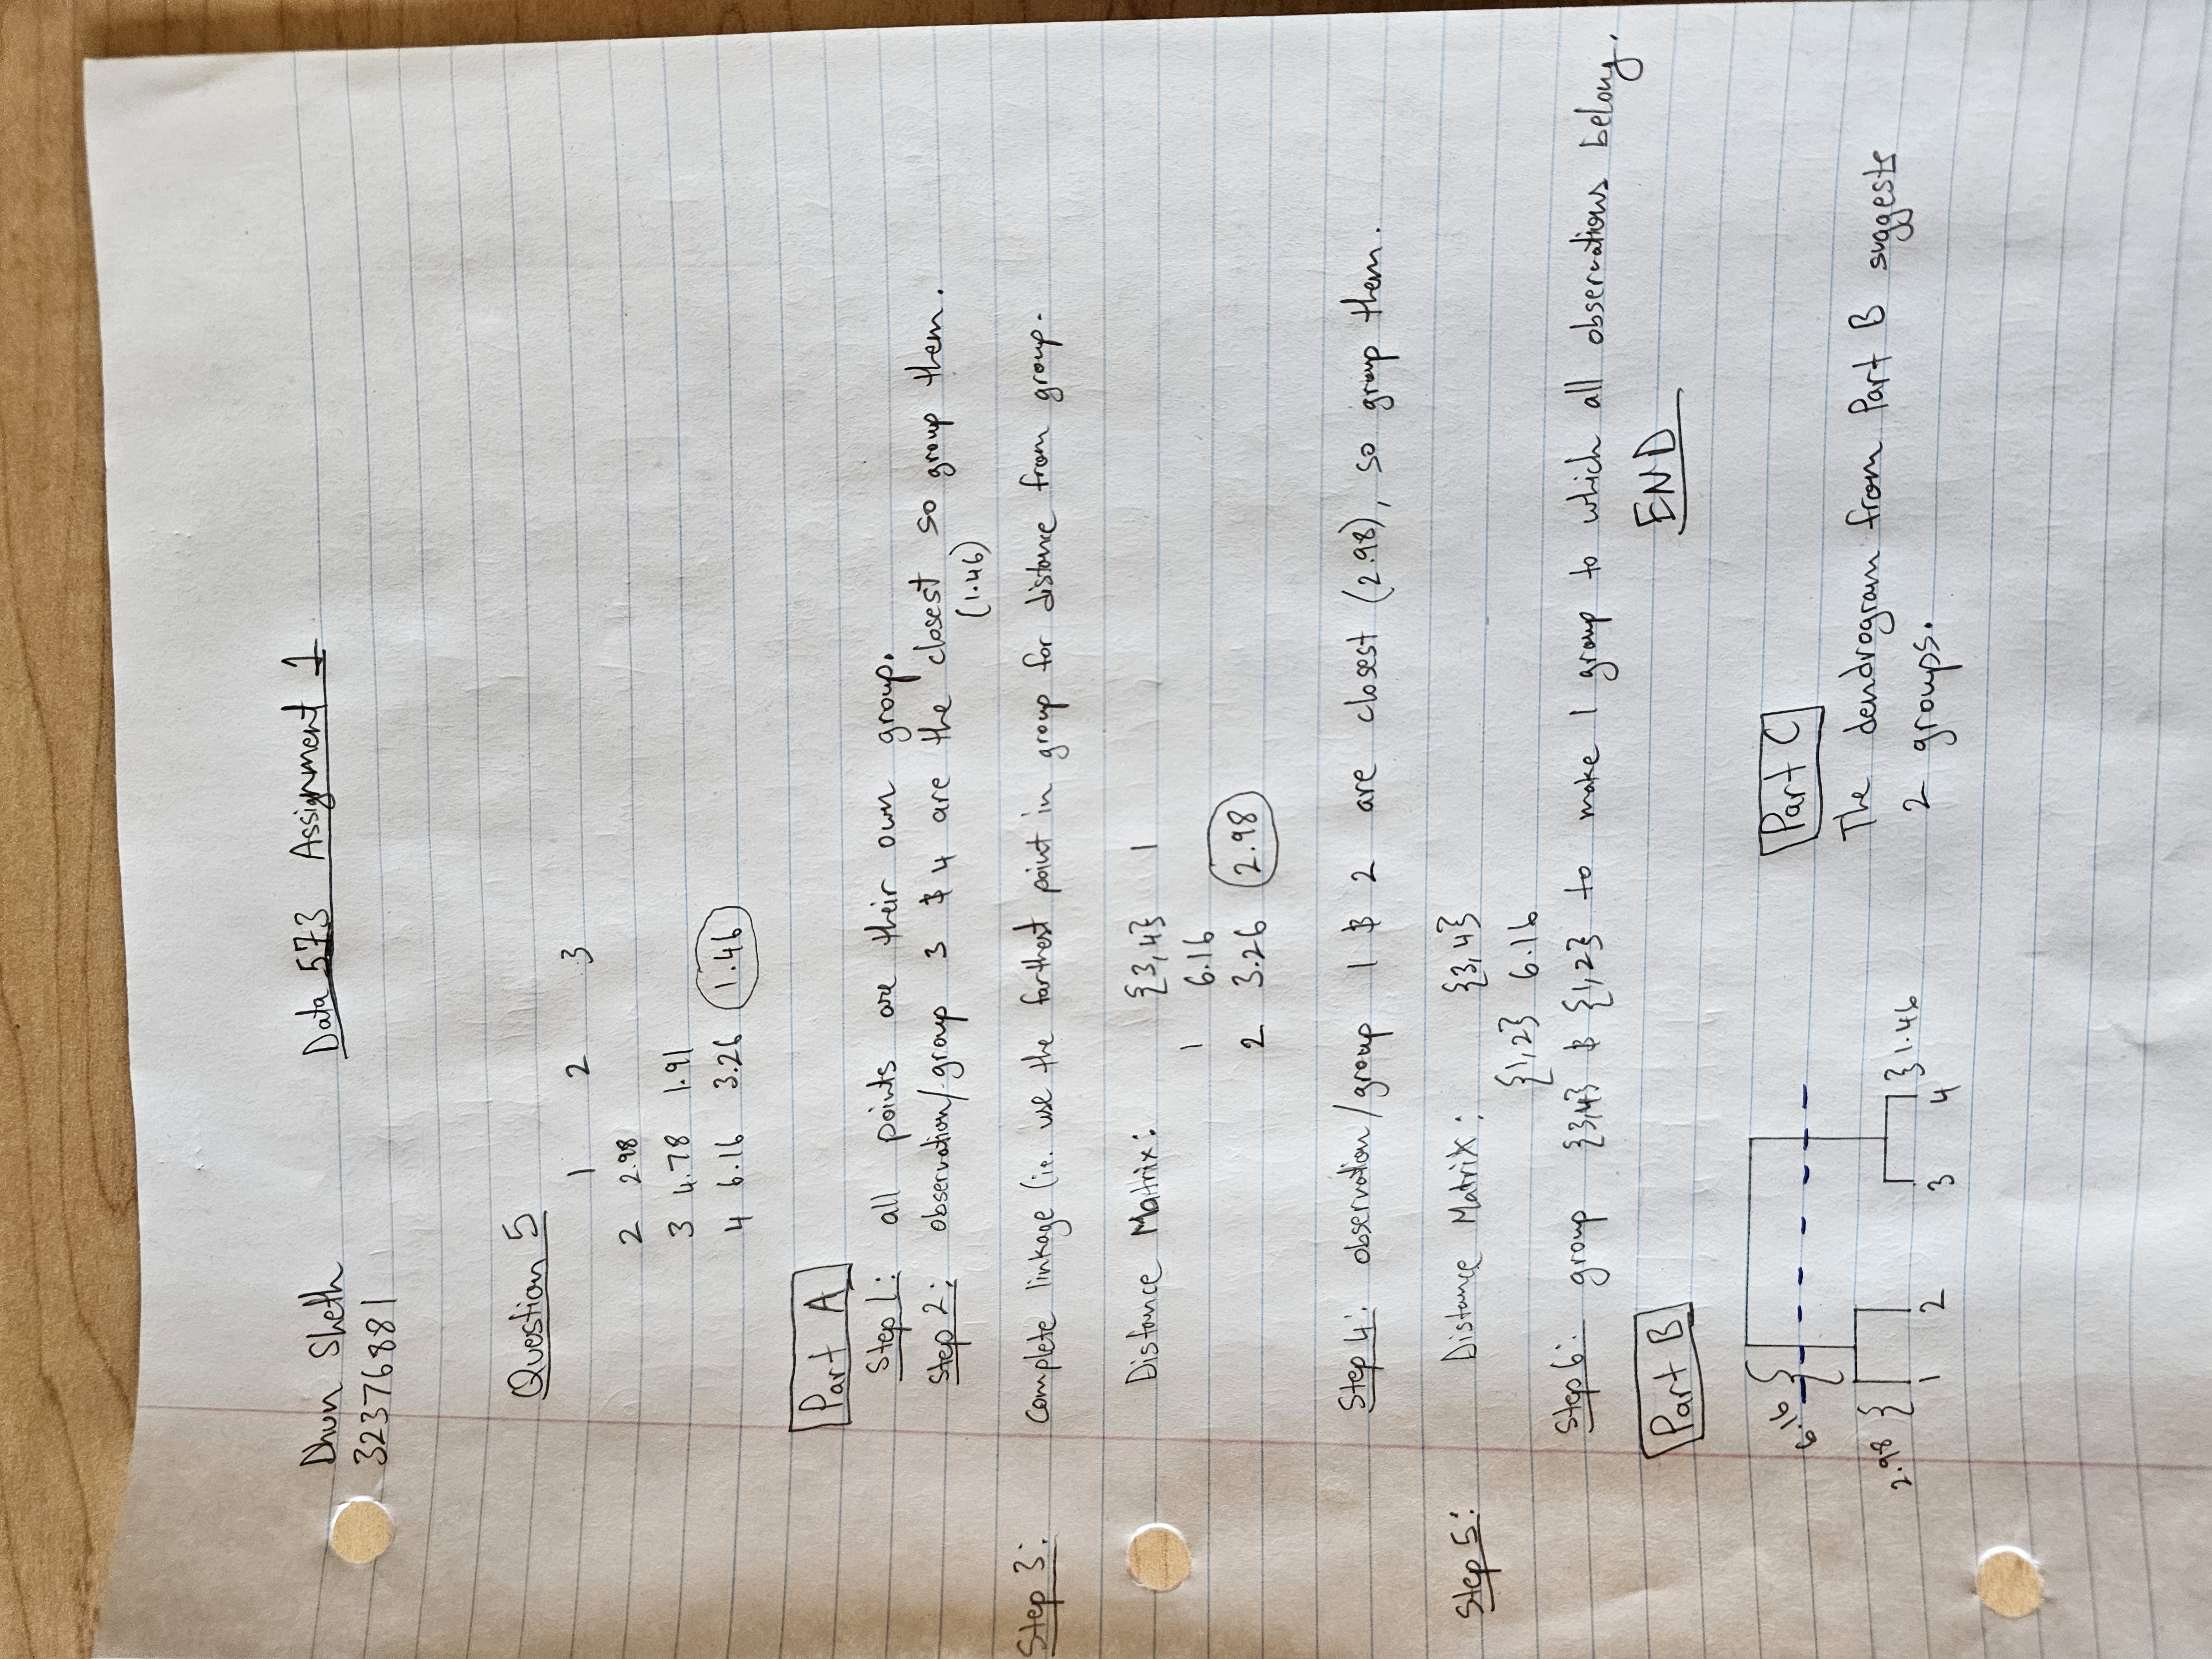 Dhun Sheth
Data 573 Assignment 1
32376881
Question 5
1 2 3
2 2.98
3 4.78 1.91
4 6.16 3.26 1.46
Part A
Step 1: all points are their own group.
Step 2: observation/group 3 & 4 are the closest so group them.
(1.46)
Step 3: Complete linkage (ie. use the farthest point in group for distance from group.
Distance Matrix: {3,4} 1
1 6.16
2 3.26 2.98
Step 4: observation/group 1 & 2 are closest (2.98), so group them.
Step 5: Distance Matrix: {3,4}
{1,2} 6.16
Step 6: group {3,4} & {1,2} to make 1 group to which all observations belong.
END
Part B
6.16
2.98
1.46
1 2 3 4
Part C
The dendrogram from Part B suggests
2 groups.